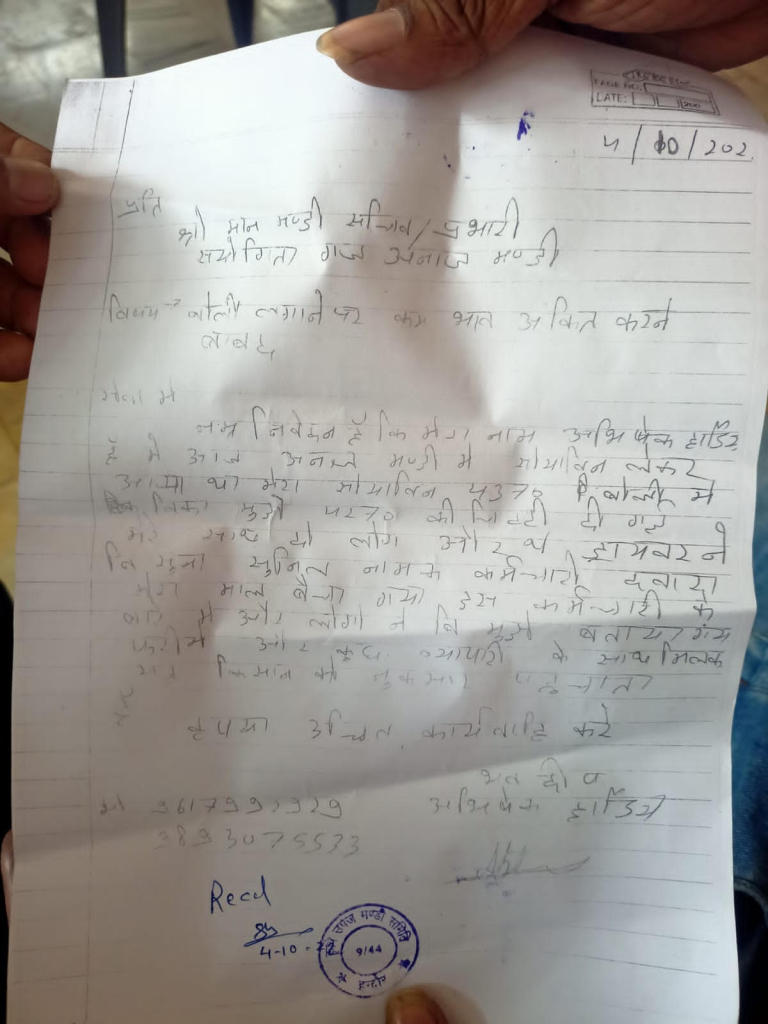 PAGE NO.
DATE:
4/10/202
प्रति
श्री मान मण्डी सचिव/प्रभारी
सयोगिता गंज अनाज मण्डी
विषय → बोली लगाने पर कम भाव अंकित करने
बाबद
सेवा मे
नम्र निवेदन हैं कि मेरा नाम अभिषेक हार्डिया
है मे आज अनाज मण्डी मे सोयाबिन लेकर
आया था मेरा सोयाबिन 4370 बोली मे
बिका मुझे 4270 की चिट्ठी दी गई
मेरे साथ दो लोग और थे ड्रायवर ने
सुनिल नामक कर्मचारी
मेरा माल बेचा गया इस कर्मचारी के
बारे मे और लोगो ने बि मुझे बताया
और कुछ व्यापारी के साथ मिलकर
किसान को नुकसान पहुचाता
कृपया उचित कार्यवाहि करे
भवदीय
अभिषेक हार्डिया
मो 9617992929
9893075533
Recd
4-10-22
उपज मण्डी समिति
9/44
इन्दौर